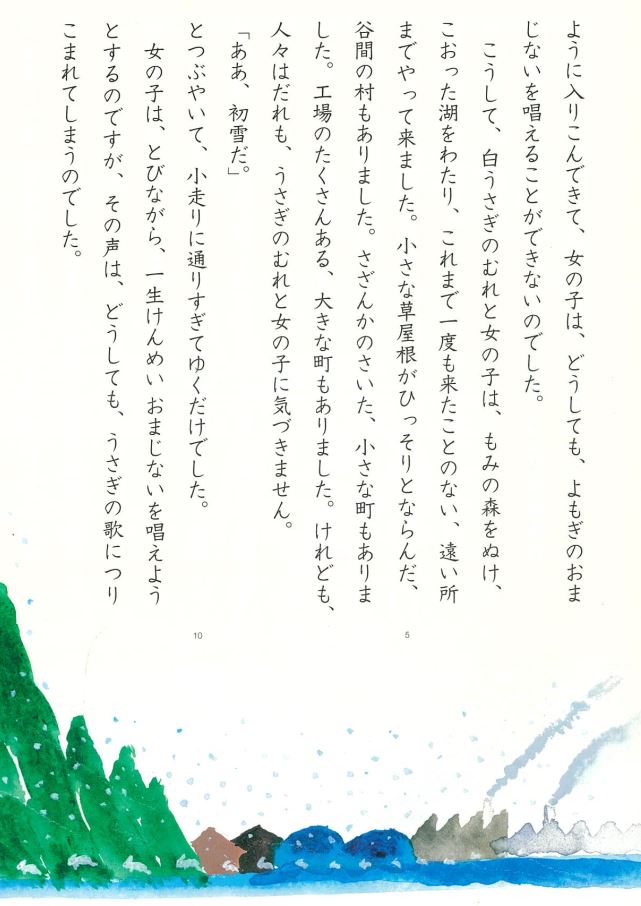 ように入りこんできて、女の子は、どうしても、よもぎのおま
じないを唱えることができないのでした。
こうして、白うさぎのむれと女の子は、もみの森をぬけ、
こおった湖をわたり、これまで一度も来たことのない、遠い所
までやって来ました。小さな草屋根がひっそりとならんだ、
谷間の村もありました。さざんかのさいた、小さな町もありま
した。工場のたくさんある、大きな町もありました。けれども、
人々はだれも、うさぎのむれと女の子に気づきません。
「ああ、初雪だ。」
とつぶやいて、小走りに通りすぎてゆくだけでした。
女の子は、とびながら、一生けんめいおまじないを唱えよう
とするのですが、その声は、どうしても、うさぎの歌につり
こまれてしまうのでした。
5
10